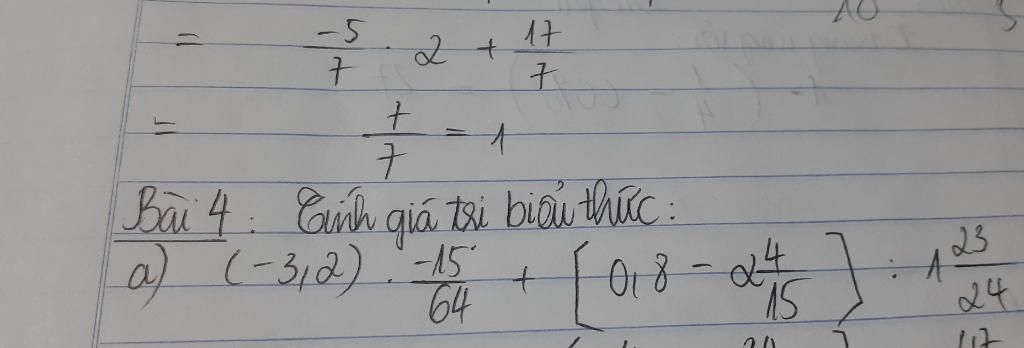 = -5/7 . 2 + 17/7
= 7/7 = 1
Bài 4 : Tính giá trị biểu thức :
a) (-3,2) . -15/64 + [ 0,8 - 2 4/15 ] : 1 23/24